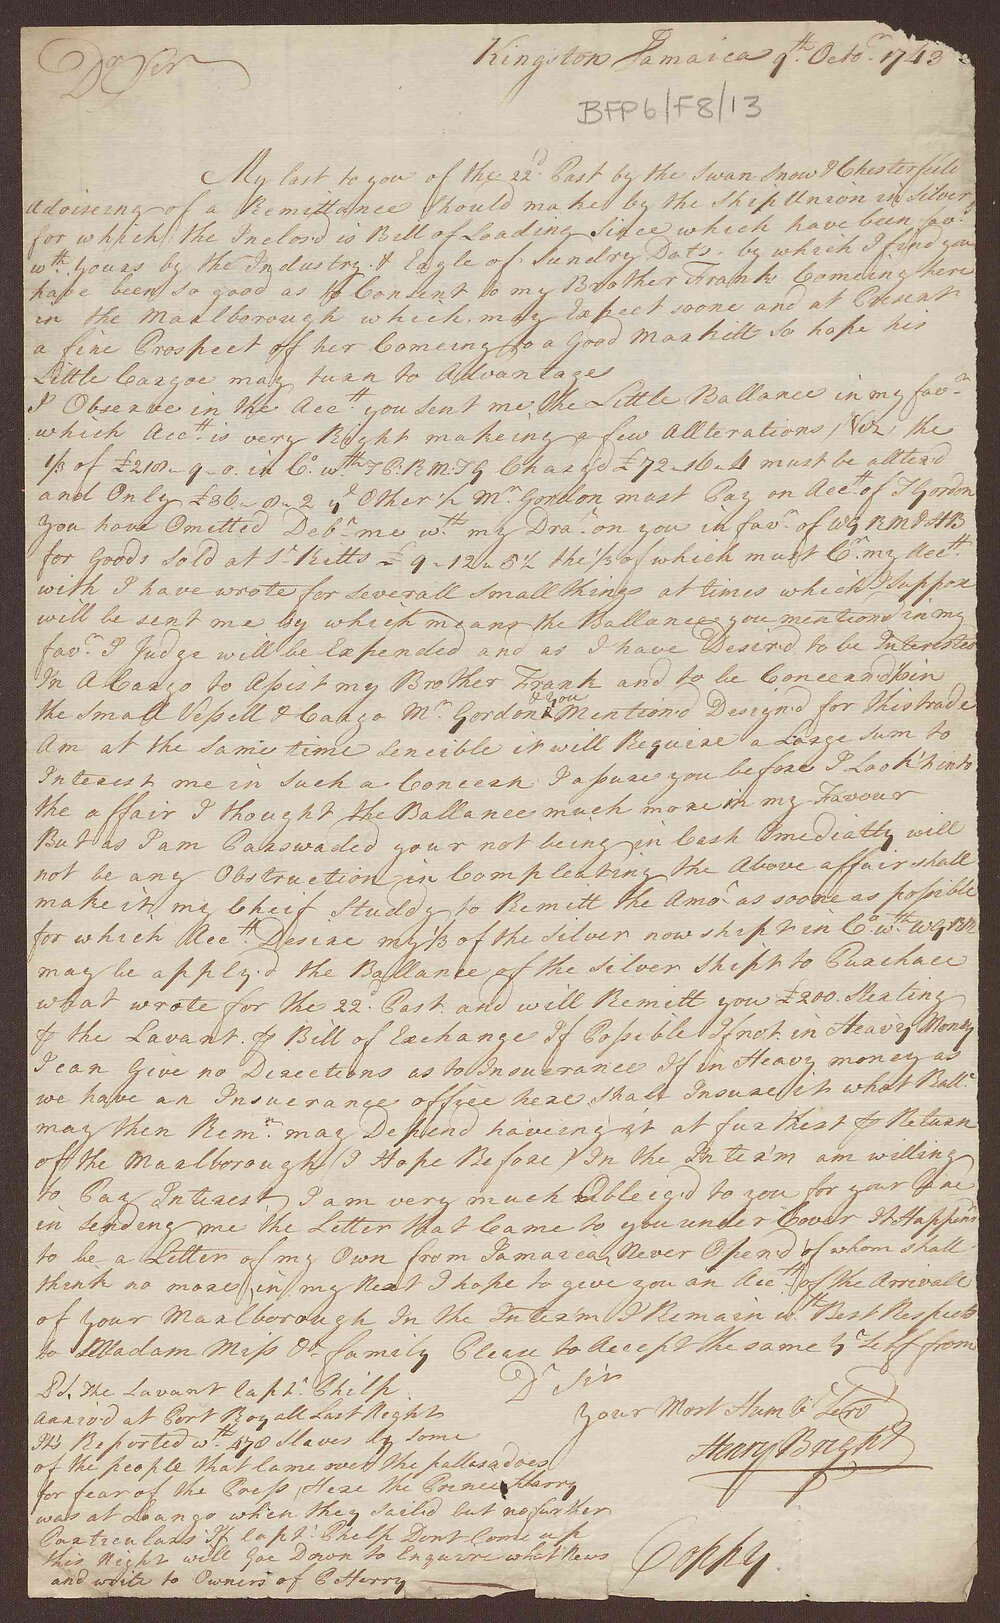 Kingston Jamaica 9th Octor. 1743
Dr Sir
BFP6/F8/13
My last to you of the 22d. Past by the Swan Snow & Chesterfeild
Adviseing of a Remittance Should make by the Ship Union in Silver
for which the Inclos'd is Bill of Loading Since which have been favr.
wth. yours by the Industry & Eagle of Sundry Dats. by which I find you
have been so good as to Consent to my Brother Franks Comeing here
in the Marlborough which may Expect soone and at Present
a fine Prospect of her Comeing to a Good Markett So hope his
Little Cargoe may turn to Advantage
I Observe in the Acctt. you sent me the Little Ballance in my favr.
which Acctt. is very Right makeing a few Allterations, Vizt, the
1/3 of £218 - 9 - 0. in Co. wth TC: RM: JG Charg'd £72 - 16 - 4 must be allter'd
and Only £36 - 8 - 2 ye Other ½ Mr. Gordon must Pay on Acctt. of J Gordon
You have Omitted Debr. me wth. my Dra. on you in favr. of WG RM & HB
for Goods Sold at St. Kitts £9 - 12 - 8½ the 1/3 of which must Cr. my Acctt.
with I have wrote for Severall Small things at times which I Suppose
will be sent me by which means the Ballance you mention'd in my
favr. I Judge will be Expended and as I have Desir'd to be Interested
In A Cargo to Assist my Brother Frank and to be Concern'd in
the Small Vessell & Cargo Mr. Gordon & you Mention'd Design'd for this trade
Am at the Same time Sencible it will Require a Large Sum to
Interest me in Such a Concern I assure you before I Look'd into
the affair I thought the Ballance much more in my Favour
But as I am Parswaded your not being in Cash Imediatly will
not be any Obstruction in Compleating the Above affair shall
make it my Cheif Studdy to Remitt the Amot. as soone as possible
for which Acctt. Desire my 1/3 of the Silver now shipt in Co. wth. WG RM
may be apply'd the Ballance of the Silver Shipt to Purchace
what wrote for the 22d. Past. and will Remitt you £200. Sterling
₱ the Lavant. ₱ Bill of Exchange If Possible If not in Heavey Money
I can Give no Directions as to Insurance If in Heavy money as
we have an Insuerance office here Shall Insure it what Ballc.
may then Remn. may Depend haveing it at furthest ₱ Return
off the Marlborough (I Hope Before) In the Inte'rm am willing
to Pay Interest I am very much Obleig'd to you for your Care
in Sending me the Letter that Came to you under Cover It Happens
to be a Letter of my Own from Jamaica Never Open'd of whom Shall
think no more, in my Next I hope to give you an Acctt. of the Arrivall
of Your Marlborough In the Inte'rm I Remain wth Best Respects
to Madam Miss & Or. family Please to Accept the same Yr. Self from
Dr Sir
Your Most Humble Servt
Henry Bright
Ps. The Lavant Capt. Philp
Arriv'd at Port Royall Last Night
It's Reported wth. 478 Slaves by Some
of the people that Came over the pallasadoes
for fear of the Press, Here the Prince Harry
was at Loango when they Sailed but no further
Particulars If Capt. Phelp Dont Come up
this Night will Goe Down to Enquire what News
and write to Owners of P Harry
Coppy.